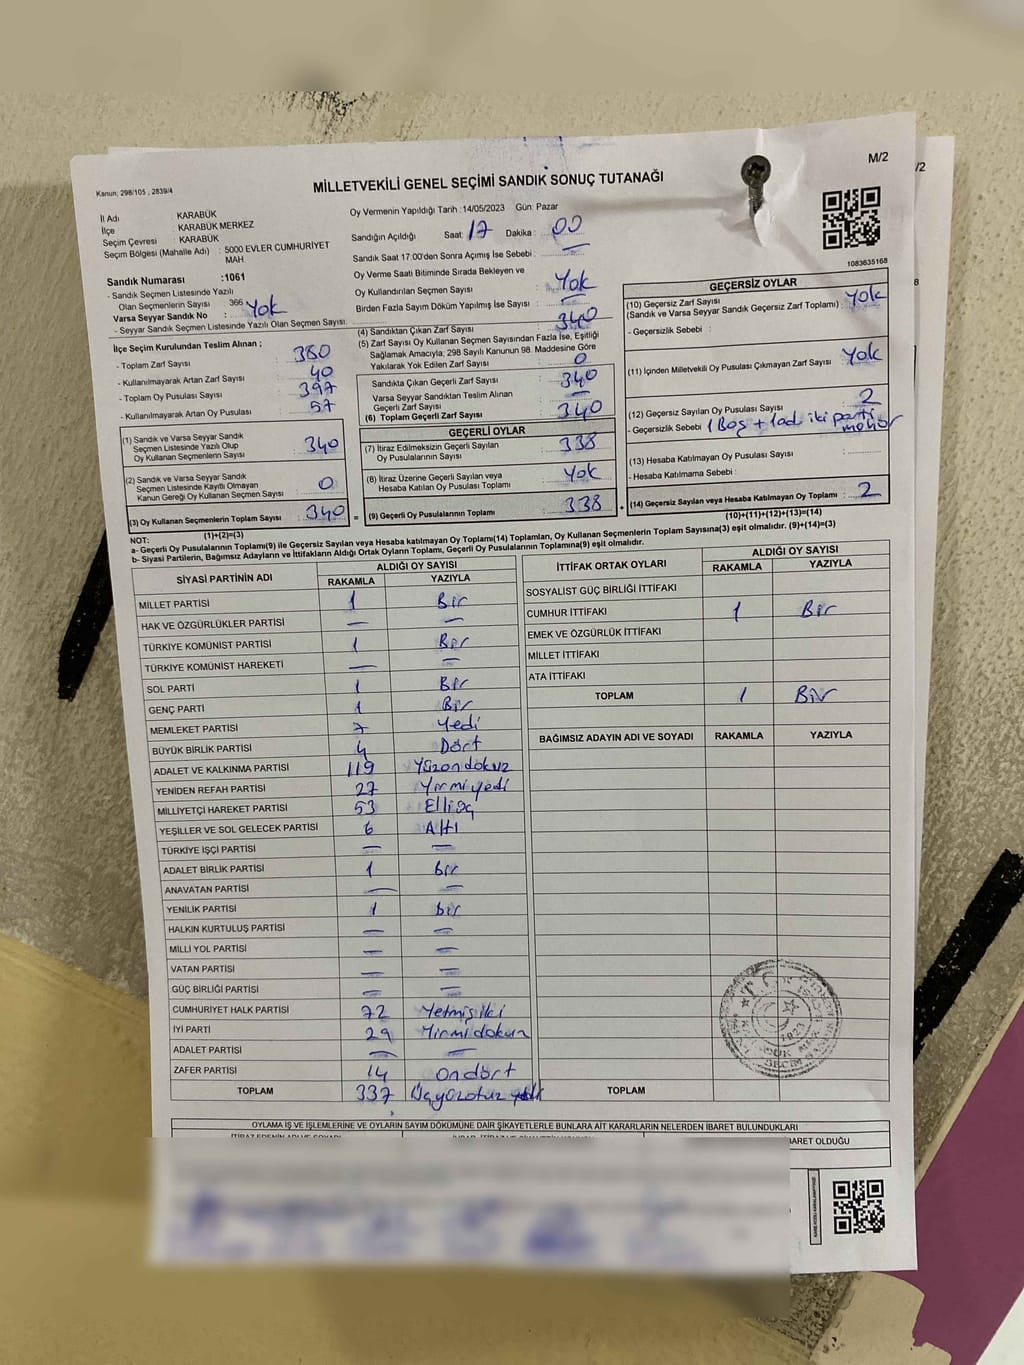 M/2
/2
Kanun: 298/105 , 2839/4
MİLLETVEKİLİ GENEL SEÇİMİ SANDIK SONUÇ TUTANAĞI
İl Adı : KARABÜK
İlçe : KARABÜK MERKEZ
Seçim Çevresi : KARABÜK
Seçim Bölgesi (Mahalle Adı) : 5000 EVLER CUMHURİYET MAH
Sandık Numarası :1061
- Sandık Seçmen Listesinde Yazılı
Olan Seçmenlerin Sayısı 366
Varsa Seyyar Sandık No : Yok
- Seyyar Sandık Seçmen Listesinde Yazılı Olan Seçmen Sayısı:
Oy Vermenin Yapıldığı Tarih :14/05/2023 Gün: Pazar
Sandığın Açıldığı Saat: 17 Dakika : 00
Sandık Saat 17:00'den Sonra Açımış İse Sebebi : —
Oy Verme Saati Bitiminde Sırada Bekleyen ve
Oy Kullandırılan Seçmen Sayısı : Yok
Birden Fazla Sayım Döküm Yapılmış İse Sayısı : —
1083635168
8
İlçe Seçim Kurulundan Teslim Alınan ;
- Toplam Zarf Sayısı : 380
- Kullanılmayarak Artan Zarf Sayısı : 40
- Toplam Oy Pusulası Sayısı : 397
- Kullanılmayarak Artan Oy Pusulası : 57
(1) Sandık ve Varsa Seyyar Sandık
Seçmen Listesinde Yazılı Olup
Oy Kullanan Seçmenlerin Sayısı : 340
(2) Sandık ve Varsa Seyyar Sandık
Seçmen Listesinde Kayıtlı Olmayan
Kanun Gereği Oy Kullanan Seçmen Sayısı : 0
(3) Oy Kullanan Seçmenlerin Toplam Sayısı : 340
(1)+(2)=(3)
(4) Sandıktan Çıkan Zarf Sayısı : 340
(5) Zarf Sayısı Oy Kullanan Seçmen Sayısından Fazla İse, Eşitliği
Sağlamak Amacıyla; 298 Sayılı Kanunun 98. Maddesine Göre
Yakılarak Yok Edilen Zarf Sayısı : 0
Sandıkta Çıkan Geçerli Zarf Sayısı : 340
Varsa Seyyar Sandıktan Teslim Alınan
Geçerli Zarf Sayısı : —
(6) Toplam Geçerli Zarf Sayısı : 340
GEÇERLİ OYLAR
(7) İtiraz Edilmeksizin Geçerli Sayılan
Oy Pusulalarının Sayısı : 338
(8) İtiraz Üzerine Geçerli Sayılan veya
Hesaba Katılan Oy Pusulası Toplamı : Yok
= (9) Geçerli Oy Pusulalarının Toplamı : 338
GEÇERSİZ OYLAR
(10) Geçersiz Zarf Sayısı : Yok
(Sandık ve Varsa Seyyar Sandık Geçersiz Zarf Toplamı)
- Geçersizlik Sebebi :
(11) İçinden Milletvekili Oy Pusulası Çıkmayan Zarf Sayısı : Yok
(12) Geçersiz Sayılan Oy Pusulası Sayısı : 2
- Geçersizlik Sebebi : 1 Boş + 1 ad. iki parti
(13) Hesaba Katılmayan Oy Pusulası Sayısı :
- Hesaba Katılmama Sebebi :
+ (14) Geçersiz Sayılan veya Hesaba Katılmayan Oy Toplamı : 2
(10)+(11)+(12)+(13)=(14)
NOT:
a- Geçerli Oy Pusulalarının Toplamı(9) ile Geçersiz Sayılan veya Hesaba katılmayan Oy Toplamı(14) Toplamları, Oy Kullanan Seçmenlerin Toplam Sayısına(3) eşit olmalıdır. (9)+(14)=(3)
b- Siyasi Partilerin, Bağımsız Adayların ve İttifakların Aldığı Ortak Oyların Toplamı, Geçerli Oy Pusulalarının Toplamına(9) eşit olmalıdır.
SİYASİ PARTİNİN ADI ALDIĞI OY SAYISI
RAKAMLA YAZIYLA
MİLLET PARTİSİ 1 Bir
HAK VE ÖZGÜRLÜKLER PARTİSİ — —
TÜRKİYE KOMÜNİST PARTİSİ 1 Bir
TÜRKİYE KOMÜNİST HAREKETİ — —
SOL PARTİ 1 Bir
GENÇ PARTİ 1 Bir
MEMLEKET PARTİSİ 7 Yedi
BÜYÜK BİRLİK PARTİSİ 4 Dört
ADALET VE KALKINMA PARTİSİ 119 Yüzondokuz
YENİDEN REFAH PARTİSİ 27 Yirmiyedi
MİLLİYETÇİ HAREKET PARTİSİ 53 Elliüç
YEŞİLLER VE SOL GELECEK PARTİSİ 6 Altı
TÜRKİYE İŞÇİ PARTİSİ — —
ADALET BİRLİK PARTİSİ 1 bir
ANAVATAN PARTİSİ — —
YENİLİK PARTİSİ 1 bir
HALKIN KURTULUŞ PARTİSİ — —
MİLLİ YOL PARTİSİ — —
VATAN PARTİSİ — —
GÜÇ BİRLİĞİ PARTİSİ — —
CUMHURİYET HALK PARTİSİ 72 Yetmişiki
İYİ PARTİ 29 Yirmidokuz
ADALET PARTİSİ — —
ZAFER PARTİSİ 14 Ondört
TOPLAM 337 Üçyüzotuz yedi
İTTİFAK ORTAK OYLARI ALDIĞI OY SAYISI
RAKAMLA YAZIYLA
SOSYALİST GÜÇ BİRLİĞİ İTTİFAKI
CUMHUR İTTİFAKI 1 Bir
EMEK VE ÖZGÜRLÜK İTTİFAKI
MİLLET İTTİFAKI
ATA İTTİFAKI
TOPLAM 1 Bir
BAĞIMSIZ ADAYIN ADI VE SOYADI RAKAMLA YAZIYLA
TOPLAM
OYLAMA İŞ VE İŞLEMLERİNE VE OYLARIN SAYIM DÖKÜMÜNE DAİR ŞİKAYETLERLE BUNLARA AİT KARARLARIN NELERDEN İBARET BULUNDUKLARI
İTİRAZ EDENİN ADI VE SOYADI
BARET OLDUĞU